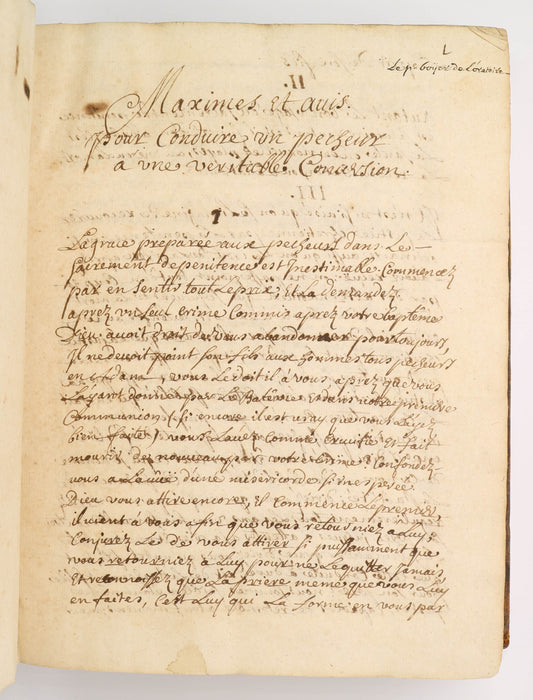 L
Le pe boyer de L'oratoire
Maximes Et auis
pour Conduire vn pecheur
a vne veritable Conuersion
1
La grace preparée aux pecheurs dans Le
sacrement de penitence est Inestimable. Commencez
par en sentir tout Le prix, Et La demandez
aprez vn seul Crime Commis aprez votre bapteme
Dieu auoit droit de vous abandonner pour toujours
Il ne deuoit point son fils aux hommes tous pecheurs
en Adam, vous Le doit il à vous aprez que vous
L'ayant donné par Le Bateme Et dans votre premiere
Communion (si encore il est vray que vous L'ayez
bien faite) vous L'auez Comme Crucifié Et fait
mourir de nouveau par votre Crime? Confondez
vous a La vüe d'une misericorde si
Dieu vous attire encore, Il Commence Le premier
il vient à vous afin que vous retourniez a Luy
Conjurez Le de vous attirer si puissamment que
vous retourniez à Luy pour ne Le quitter jamais
Et reconnoissez que La priere meme que vous Luy
en faites, C'est Luy qui La forme en vous par
II.
III.